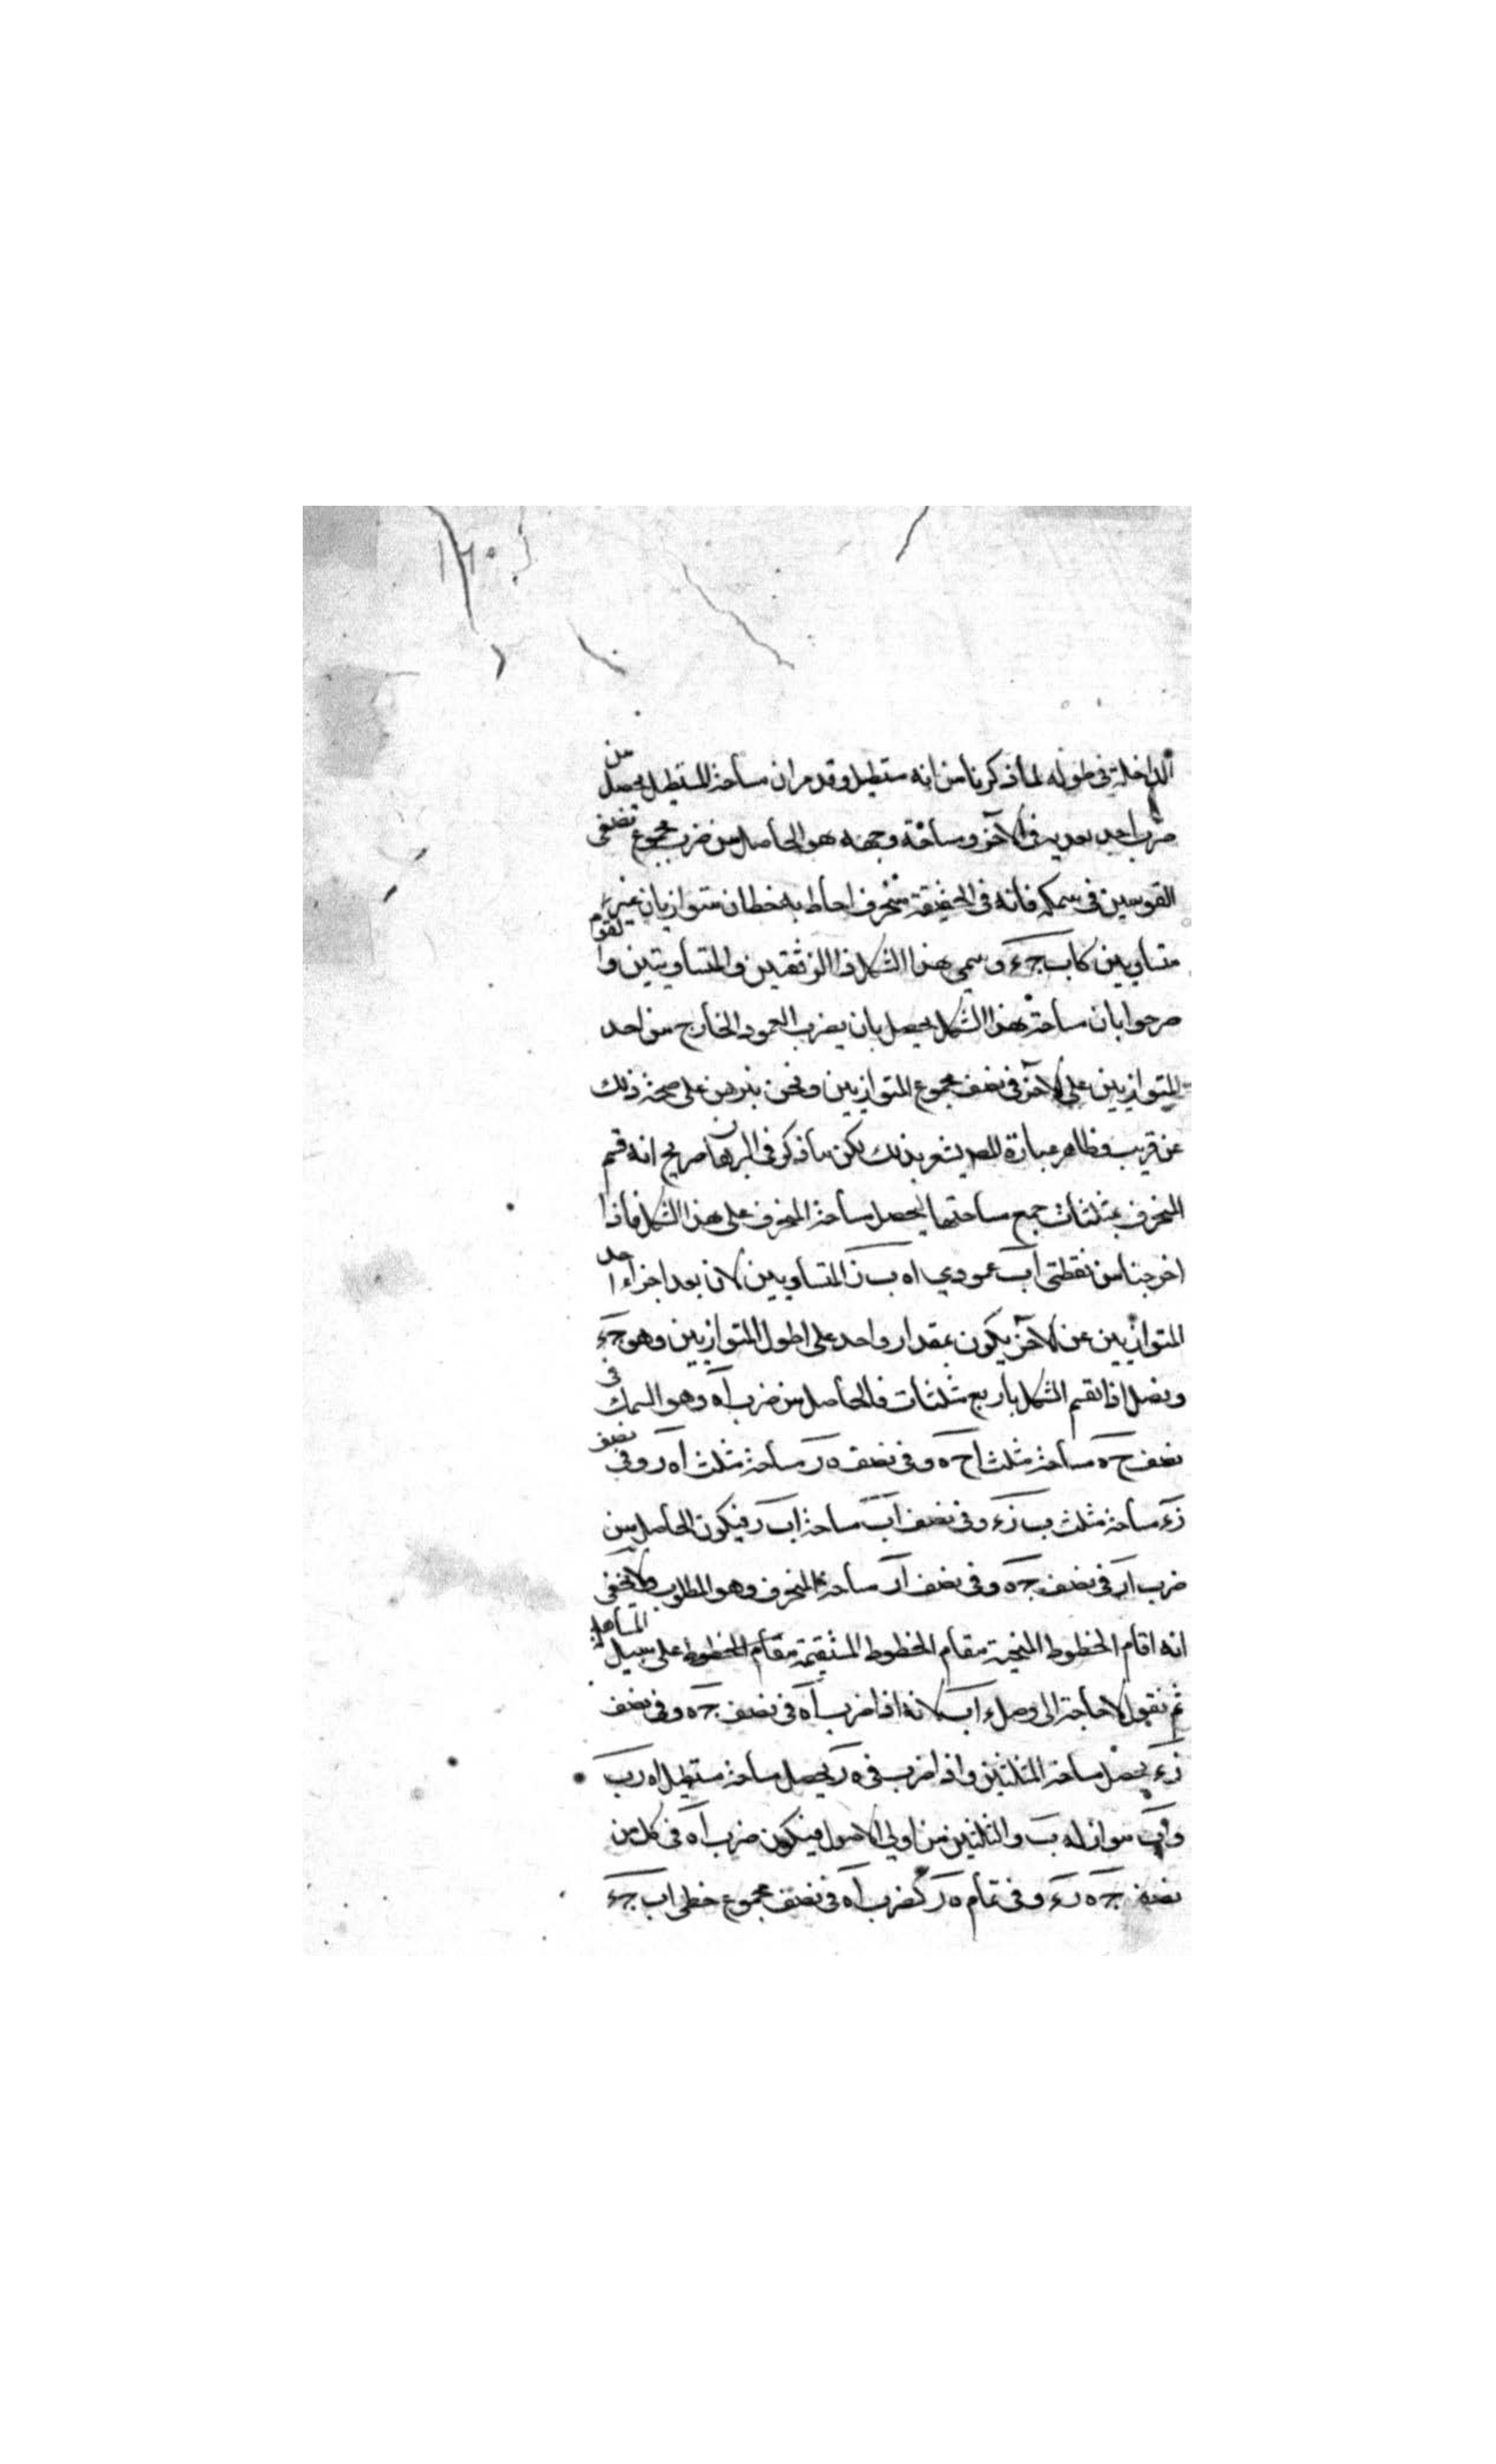 ١٢٠
الداخلة في طوله لما ذكرنا من انه مستطيل وقد مر ان مساحة المستطيل يحصل من
ضرب احد بعديه في الآخر ومساحة وجهه هو الحاصل من ضرب مجموع نصفي
القوسين في سمكه فانه في الحقيقة منحرف احاط به خطان متوازيان غير
متساويين كاب جء ويسمى هذا الشكل ذا الزنقتين المتساويتين والقوم
صرحوا بان مساحة هذا الشكل يحصل بان يضرب العمود الخارج من احد
المتوازيين على الآخر في نصف مجموع المتوازيين ونحن نبرهن على صحة ذلك
عن قريب فظاهر عبارة المص يشعر بذلك لكن ما ذكر في البرهان صريح انه قسم
المنحرف بمثلثات جمع مساحتها ليحصل مساحة المنحرف على هذا الشكل فاذا
اخرجنا من نقطتي اب عمودي اه ب ز المتساويين لان بعد اجزاء احد
المتوازيين عن الآخر يكون بمقدار واحد على اطول المتوازيين وهو جء
ونصل از انقسم الشكل باربع مثلثات فالحاصل من ضرب اه وهو السمك في
نصف حه مساحة مثلث احه وفي نصف ه ر مساحة مثلث اه ر وفي نصف
زء مساحة مثلث ب زء وفي نصف اب مساحة اب ر فيكون الحاصل من
ضرب ار في نصف جه وفي نصف ار مساحة المنحرف وهو المطلوب ولا يخفى
انه اقام الخطوط المنحنية مقام الخطوط المستقيمة مقام الخطوط على سبيل المساهلة
ثم نقول لا حاجة الى وصل اب لانه اذا ضرب اه في نصف جه وفي نصف
زء يحصل مساحة المثلثين واذا ضرب في ه ر يحصل مساحة مستطيل اه ر ب
مواز له ب والثلثين من اولي الاصول فيكون ضرب اه في كل من
نصف جه رء وفي تمام ه ر كضرب اه في نصف مجموع خطي اب جء